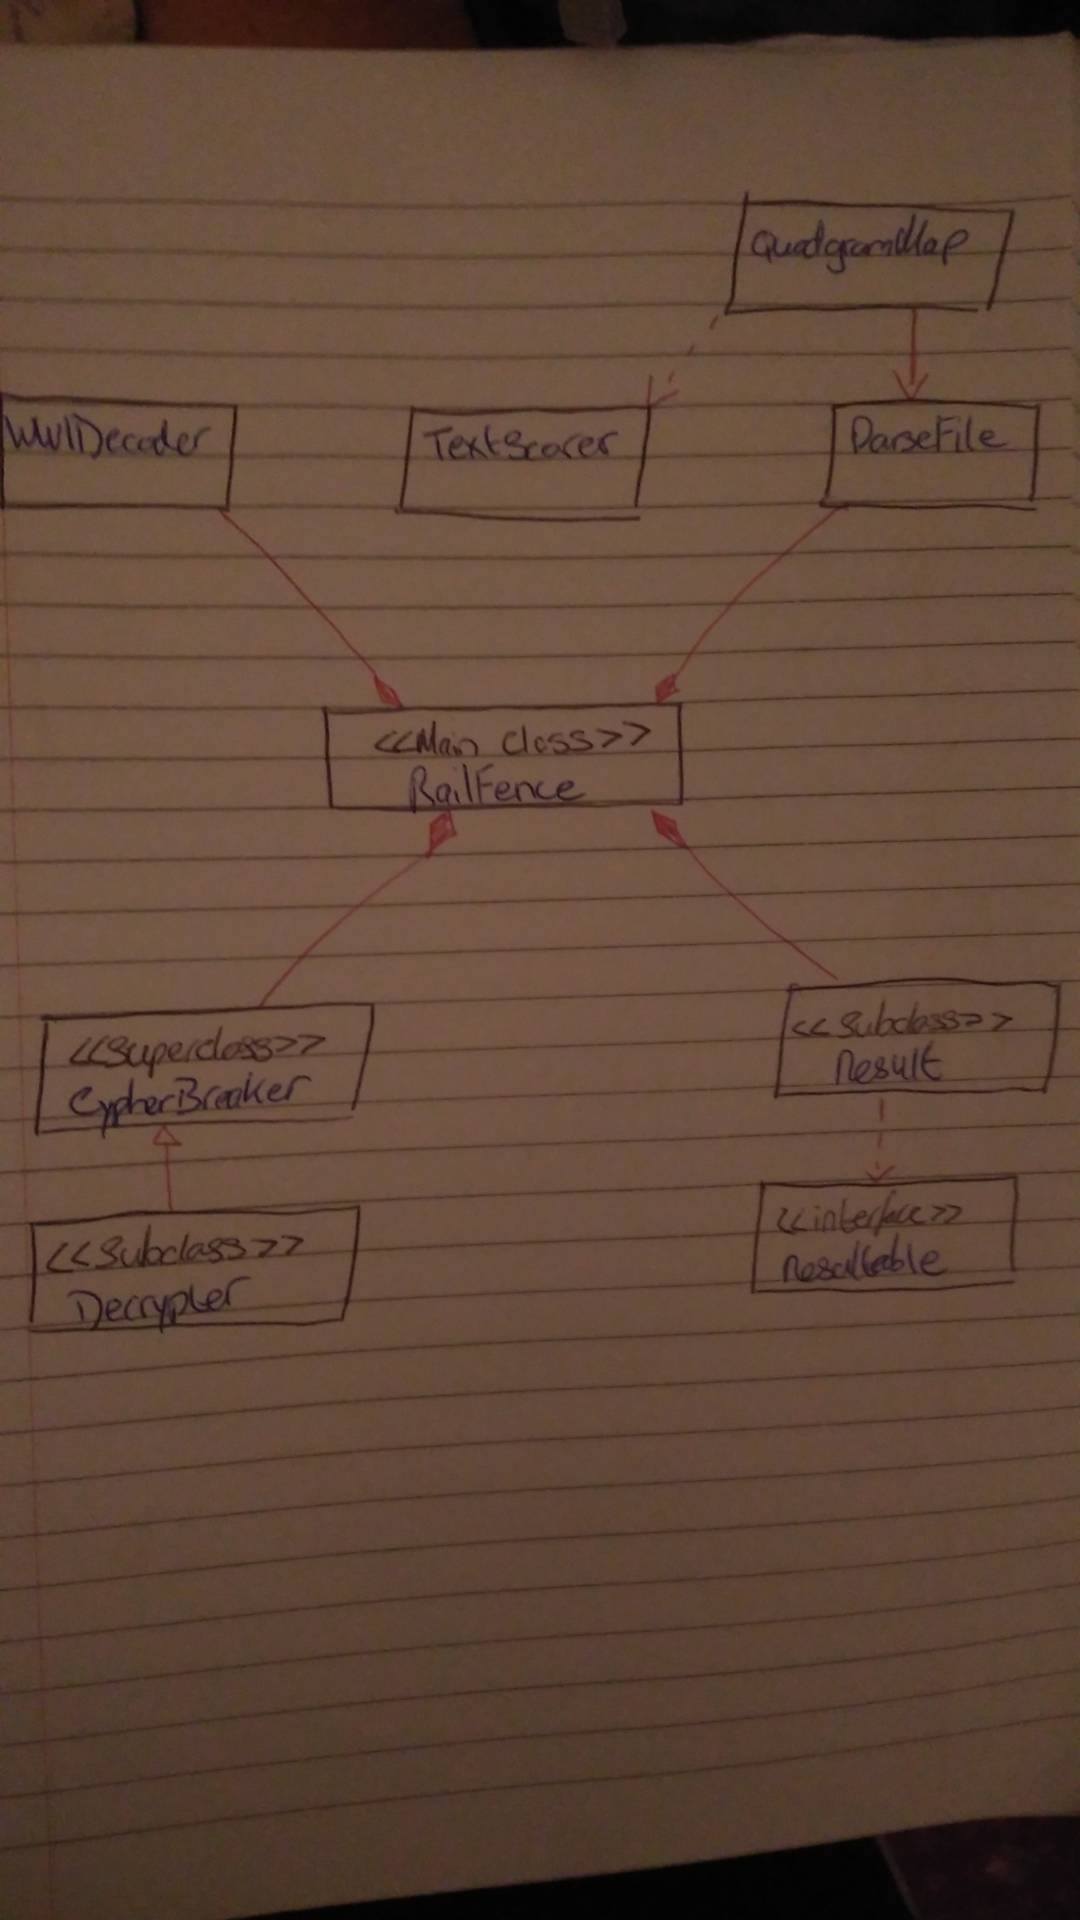 QuadgramMap
WW1Decoder
TextScorer
ParseFile
<<Main class>>
RailFence
<<Superclass>>
CypherBreaker
<<Subclass>>
Result
<<Subclass>>
Decrypter
<<interface>>
Resultable